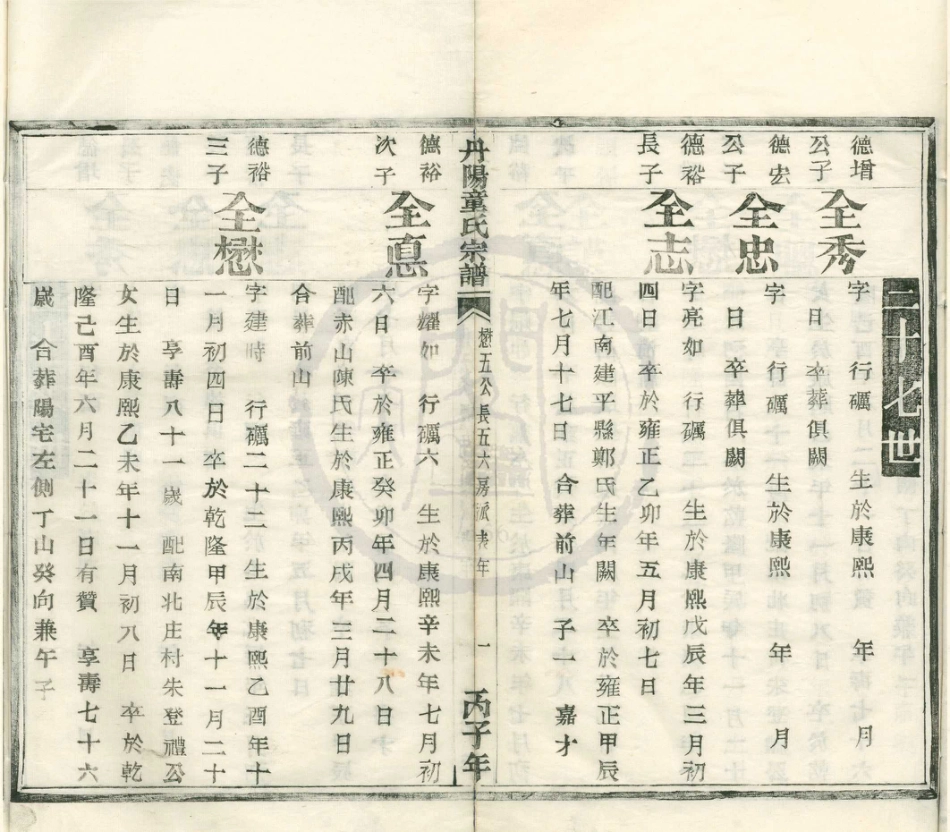 二十七世
德增
公子
全秀
字 行礪 生於康熙 年 月
日 卒葬俱闕
德宏
公子
全忠
字 行礪 生於康熙 年 月
日 卒葬俱闕
德裕
長子
全志
字亮如 行礪 生於康熙戊辰年三月初
四日 卒於雍正乙卯年五月初七日
配江南建平縣鄭氏生年闕 卒於雍正甲辰
年七月十七日 合葬前山 子一 嘉才
丹陽童氏宗譜
懋五公長五六房 年
一
丙子年
德裕
次子
全惪
字耀如 行礪六 生於康熙辛未年七月初
六日 卒於雍正癸卯年四月二十八日
配赤山陳氏生於康熙丙戌年三月廿九日
合葬前山
德裕
三子
全懋
字建時 行礪二十二生於康熙乙酉年十
一月初四日卒於乾隆甲辰年十一月二十
日 享壽八十一歲 配南北庄村朱登禮公
女生於康熙乙未年十一月初八日 卒於乾
隆己酉年六月二十一日有贊 享壽七十六
歲 合葬陽宅左側丁山癸向兼午子